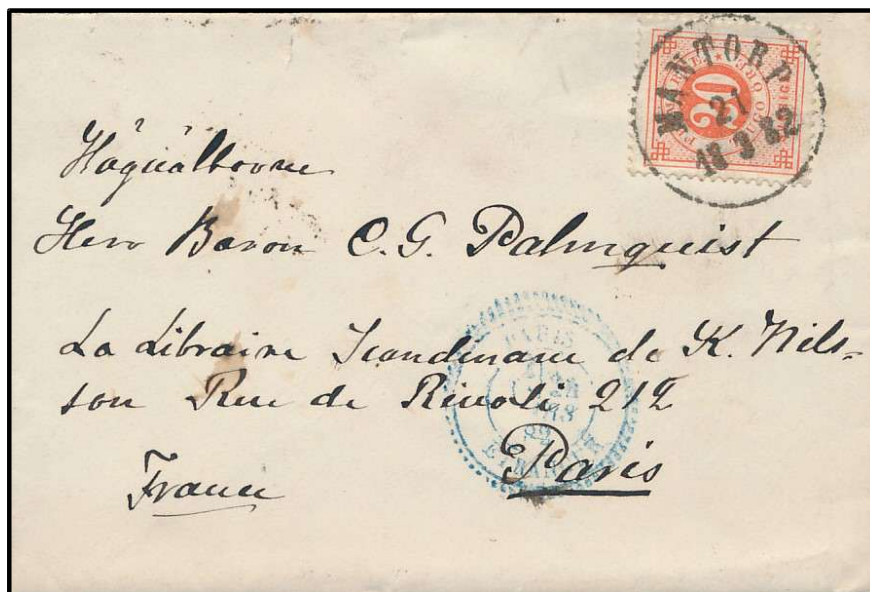 MANTORP
21
18 3 82
Högvälborne
Herr Baron C. G. Palmquist
La Librairie Scandinave de K. Nils-
son Rue de Rivoli 212
France
Paris
PARIS
ETRANGER
30